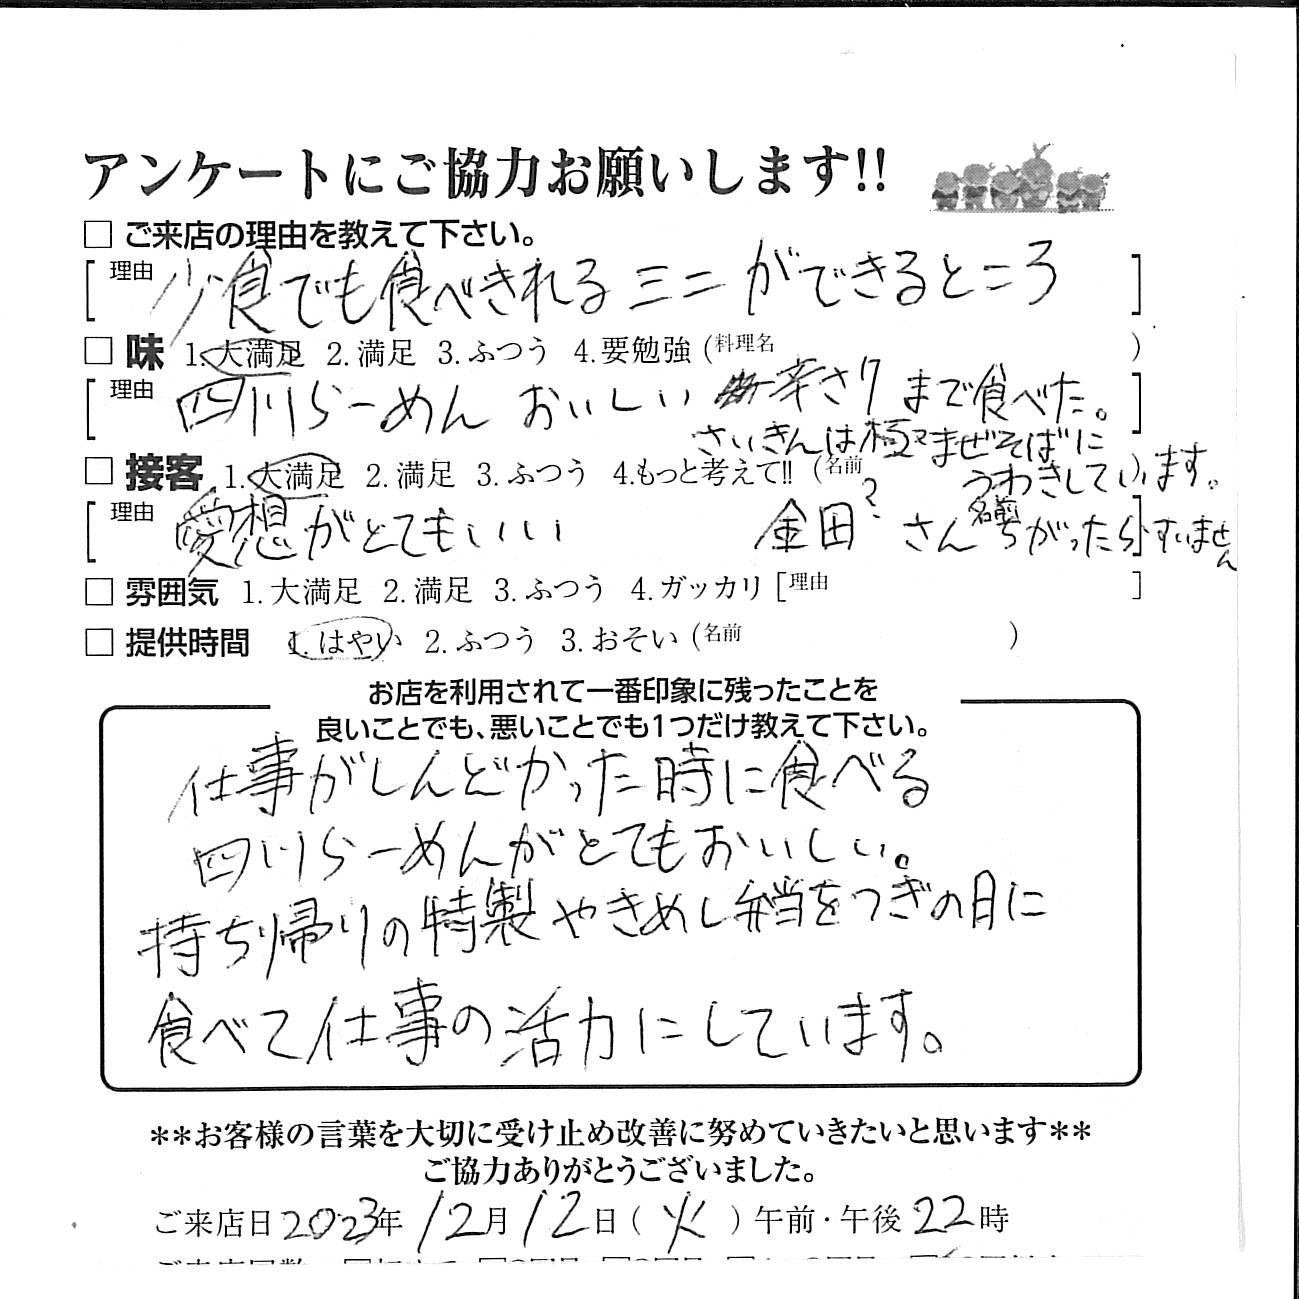 アンケートにご協力お願いします!!
□ ご来店の理由を教えて下さい。
[理由 少食でも食べきれるミニができるところ]
□ 味 1.大満足 2.満足 3.ふつう 4.要勉強(料理名 )
[理由 四川らーめん おいしい 辛さ7 まで食べた。]
さいきんは極マまぜそばに
うわきしています。
□ 接客 1.大満足 2.満足 3.ふつう 4.もっと考えて!!(名前 )
[理由 愛想がとてもいい 金田? さん 名前ちがったらすいません]
□ 雰囲気 1.大満足 2.満足 3.ふつう 4.ガッカリ[理由 ]
□ 提供時間 1.はやい 2.ふつう 3.おそい(名前 )
お店を利用されて一番印象に残ったことを
良いことでも、悪いことでも1つだけ教えて下さい。
仕事がしんどかった時に食べる
四川らーめんがとてもおいしい。
持ち帰りの特製やきめし弁当をつぎの日に
食べて仕事の活力にしています。
**お客様の言葉を大切に受け止め改善に努めていきたいと思います**
ご協力ありがとうございました。
ご来店日2023年12月12日(火)午前・午後22時